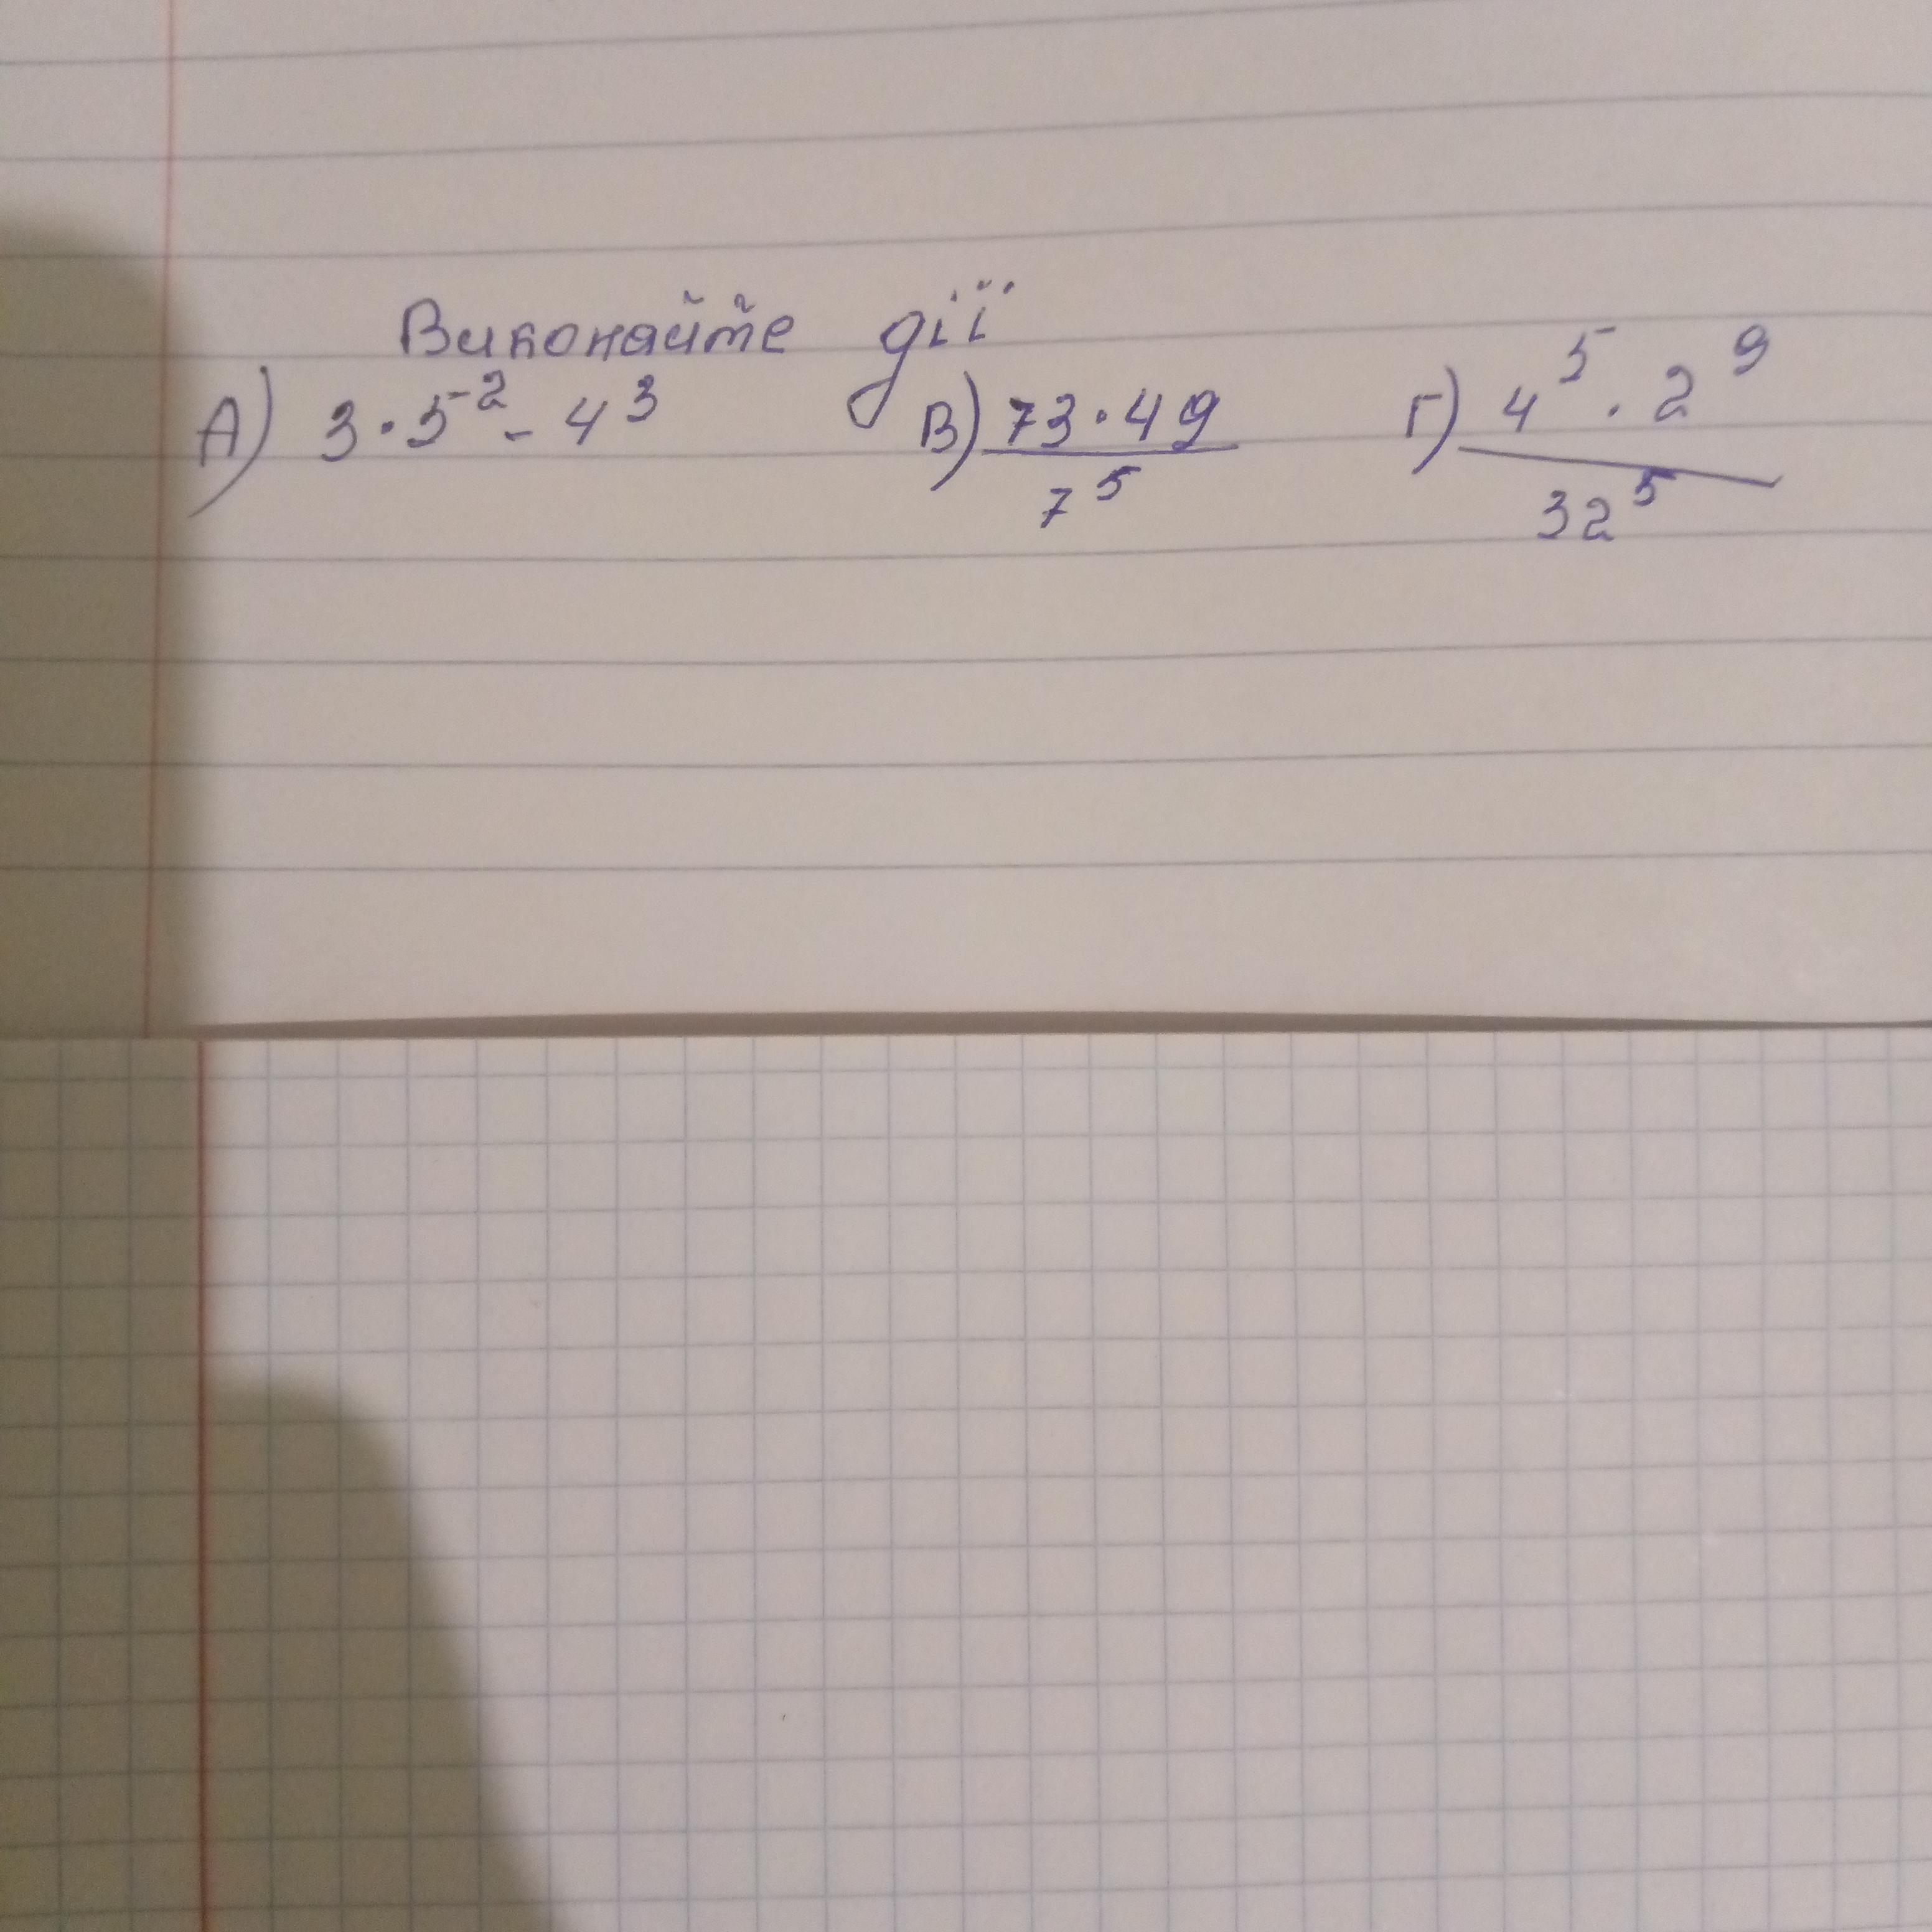 Виконайте дії
А) 3·5⁻² - 4³ В) 73·49 / 7⁵ Г) 4⁵ · 2⁹ / 32⁵